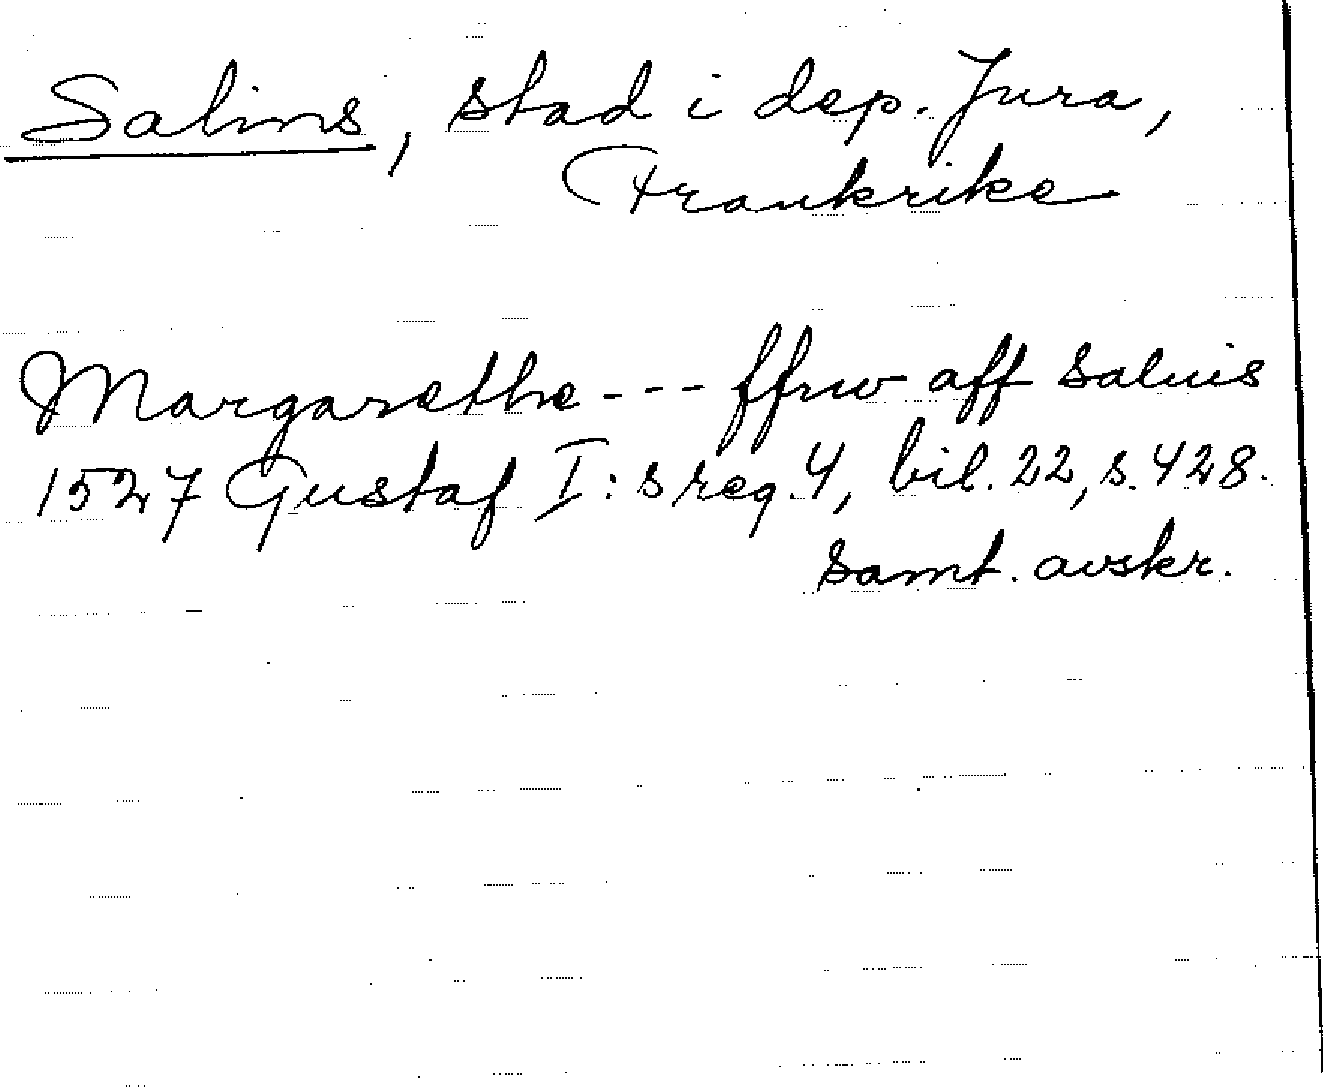 Salins, stad i dep. Jura,
Frankrike
Margarethe - - - ffrw aff Saluis
1527 Gustaf I:s reg. 4, bil. 22, s. 428.
samt. avskr.